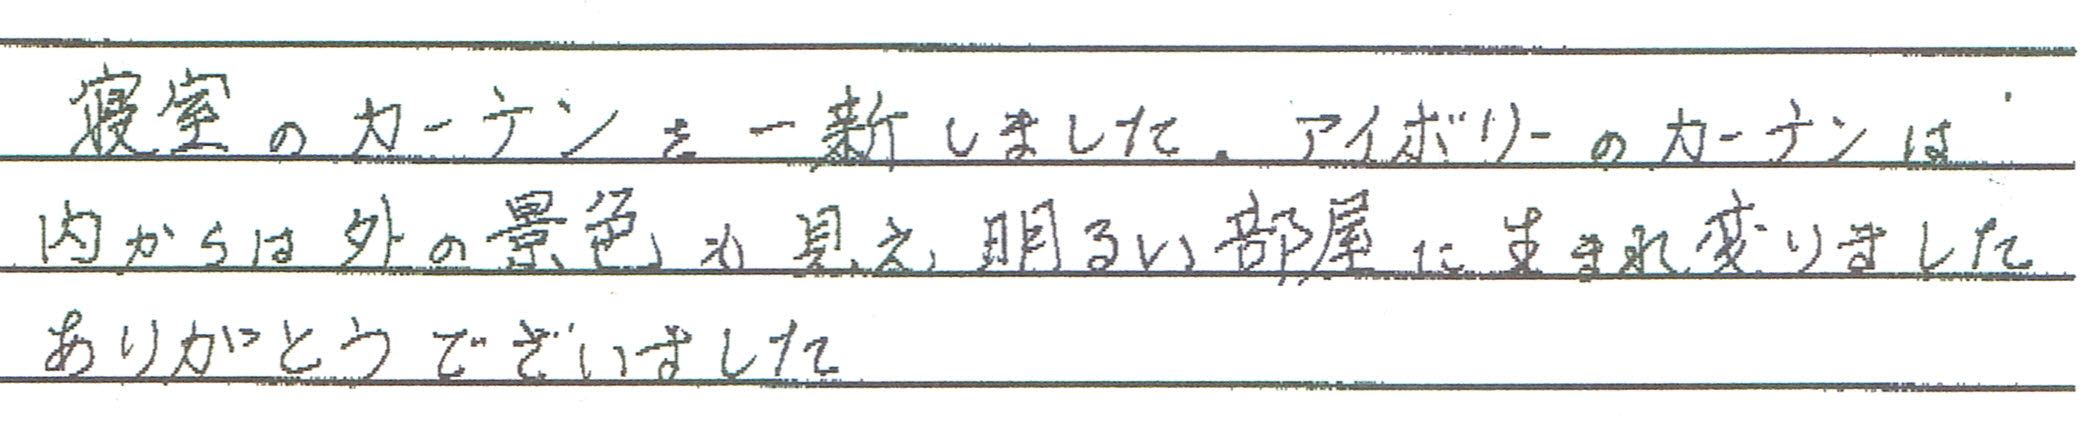 寝室のカーテンを一新しました。アイボリーのカーテンは
内からは外の景色も見え、明るい部屋に生まれ変りました
ありがとうございました